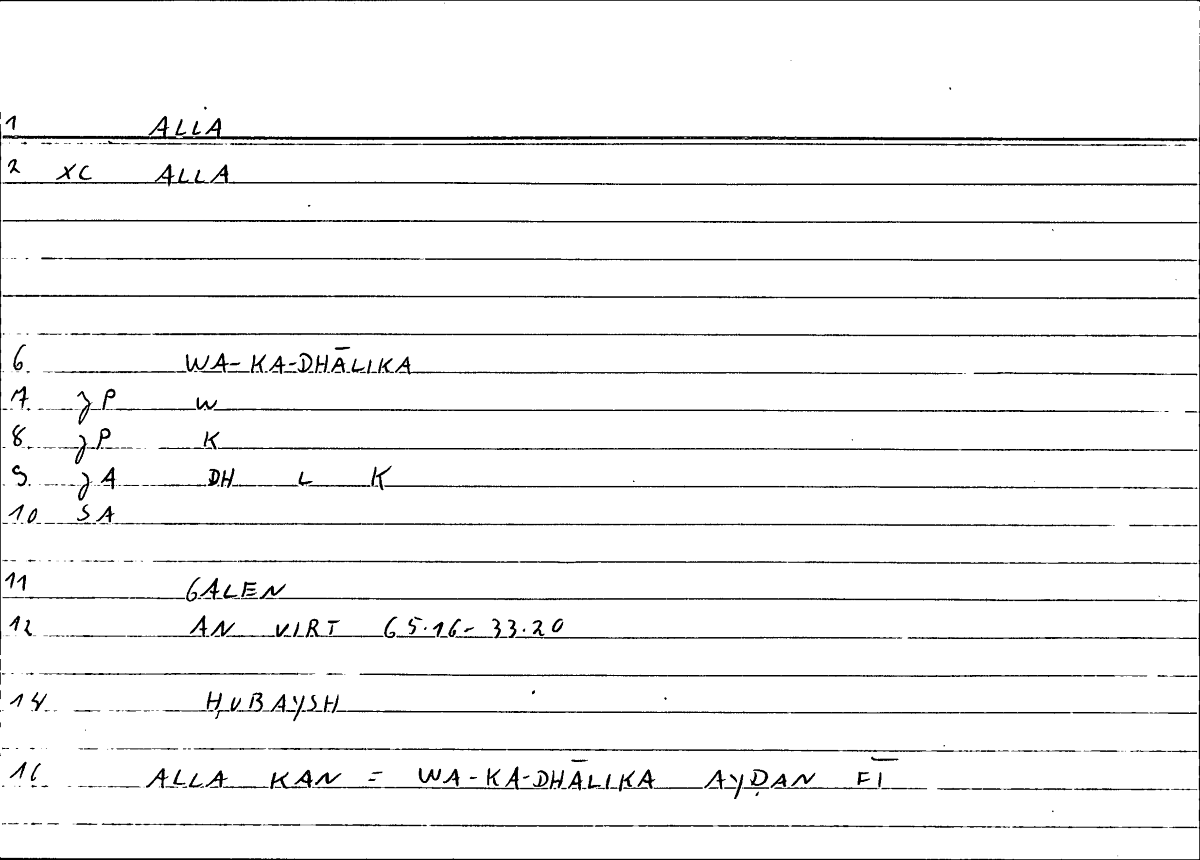 1 ALLA
2 XC ALLA
6 WA-KA-DHĀLIKA
7 ʒP W
8 ʒP K
9 ʒA DH L K
10 SA
11 GALEN
12 AN VIRT 65.16-33.20
14 ḤUBAYSH
16 ALLA KAN = WA-KA-DHĀLIKA AYḌAN FĪ